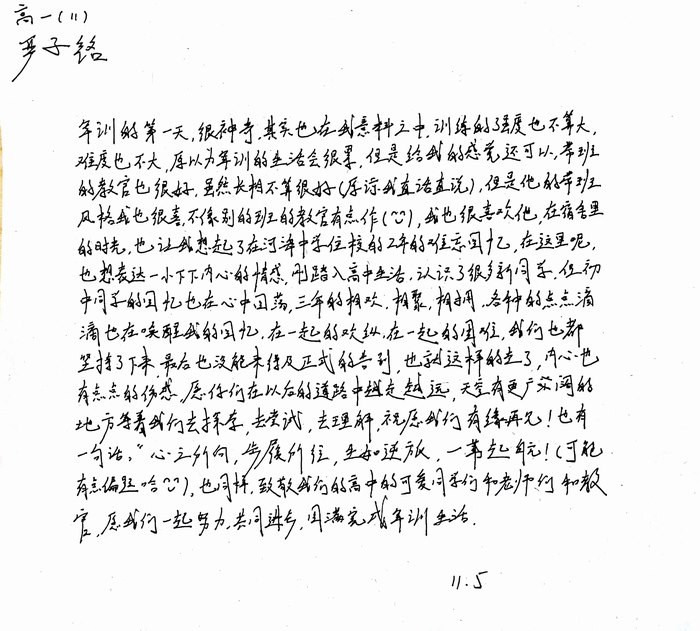 高一(11)
严子铭
军训的第一天,很神奇,其实也在我意料之中,训练的强度也不算大,
难度也不大,原以为军训的生活会很累,但是给我的感觉还可以,带班
的教官也很好,虽然长相不算很好(原谅我直话直说),但是他的带班
风格我也很喜,不像别的班的教官有点作(),我也很喜欢他,在宿舍里
的时光,也让我想起了在河泽中学住校的2年的难忘回忆,在这里呢,
也想表达一小下下内心的情感,刚踏入高中生活,认识了很多新同学,但初
中同学的回忆也在心中回荡,三年的相欢、相聚、相拥,各种的点点滴
滴也在唤醒我的回忆,在一起的欢纵,在一起的困难,我们也都
坚持了下来,最后也没能来得及正式的告别,也就这样的走了,内心也
有点点的伤感,愿你们在以后的道路中越走越远,天空有更广阔的
地方等着我们去探索,去尝试,去理解,祝愿我们有缘再见!也有
一句话,"心之所向,步履所往,生如逆旅,一苇起航!(可能
有点偏题哈),也同样,致敬我们的高中的可爱同学们和老师们和教
官,愿我们一起努力,共同进步,圆满完成军训生活.
11.5